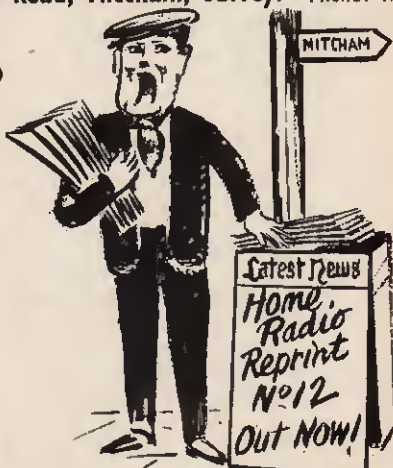 Road, Mitcham, Surrey.
MITCHAM
Latest News
Home
Radio
Reprint
No 12
Out Now!